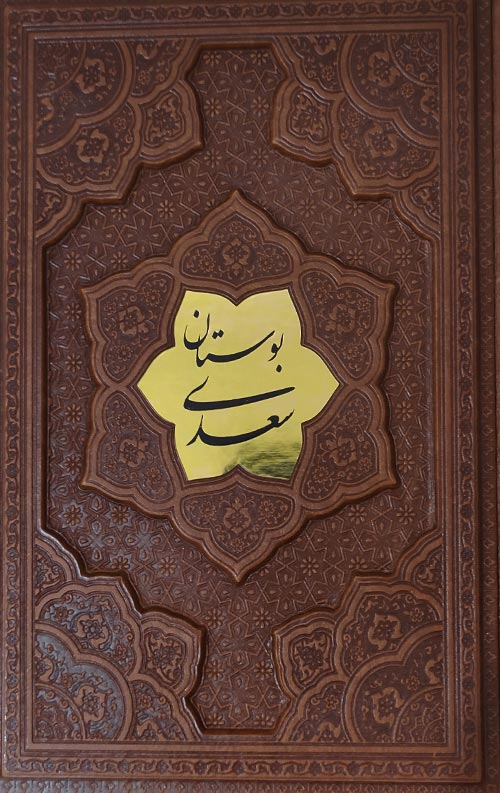 بوستان
سعدی